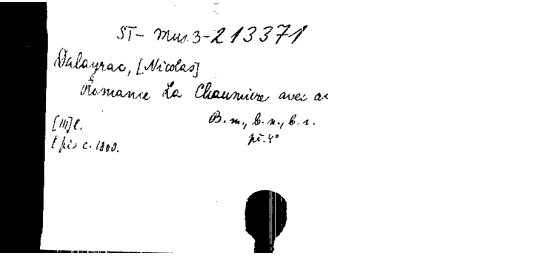 ST- Mus. 3-213371
Dalayrac, [Nicolas]
Romance La Chaumière avec ac
B. m., b. n., b. r.
[III] l.
pi. 4°
c. 1800.